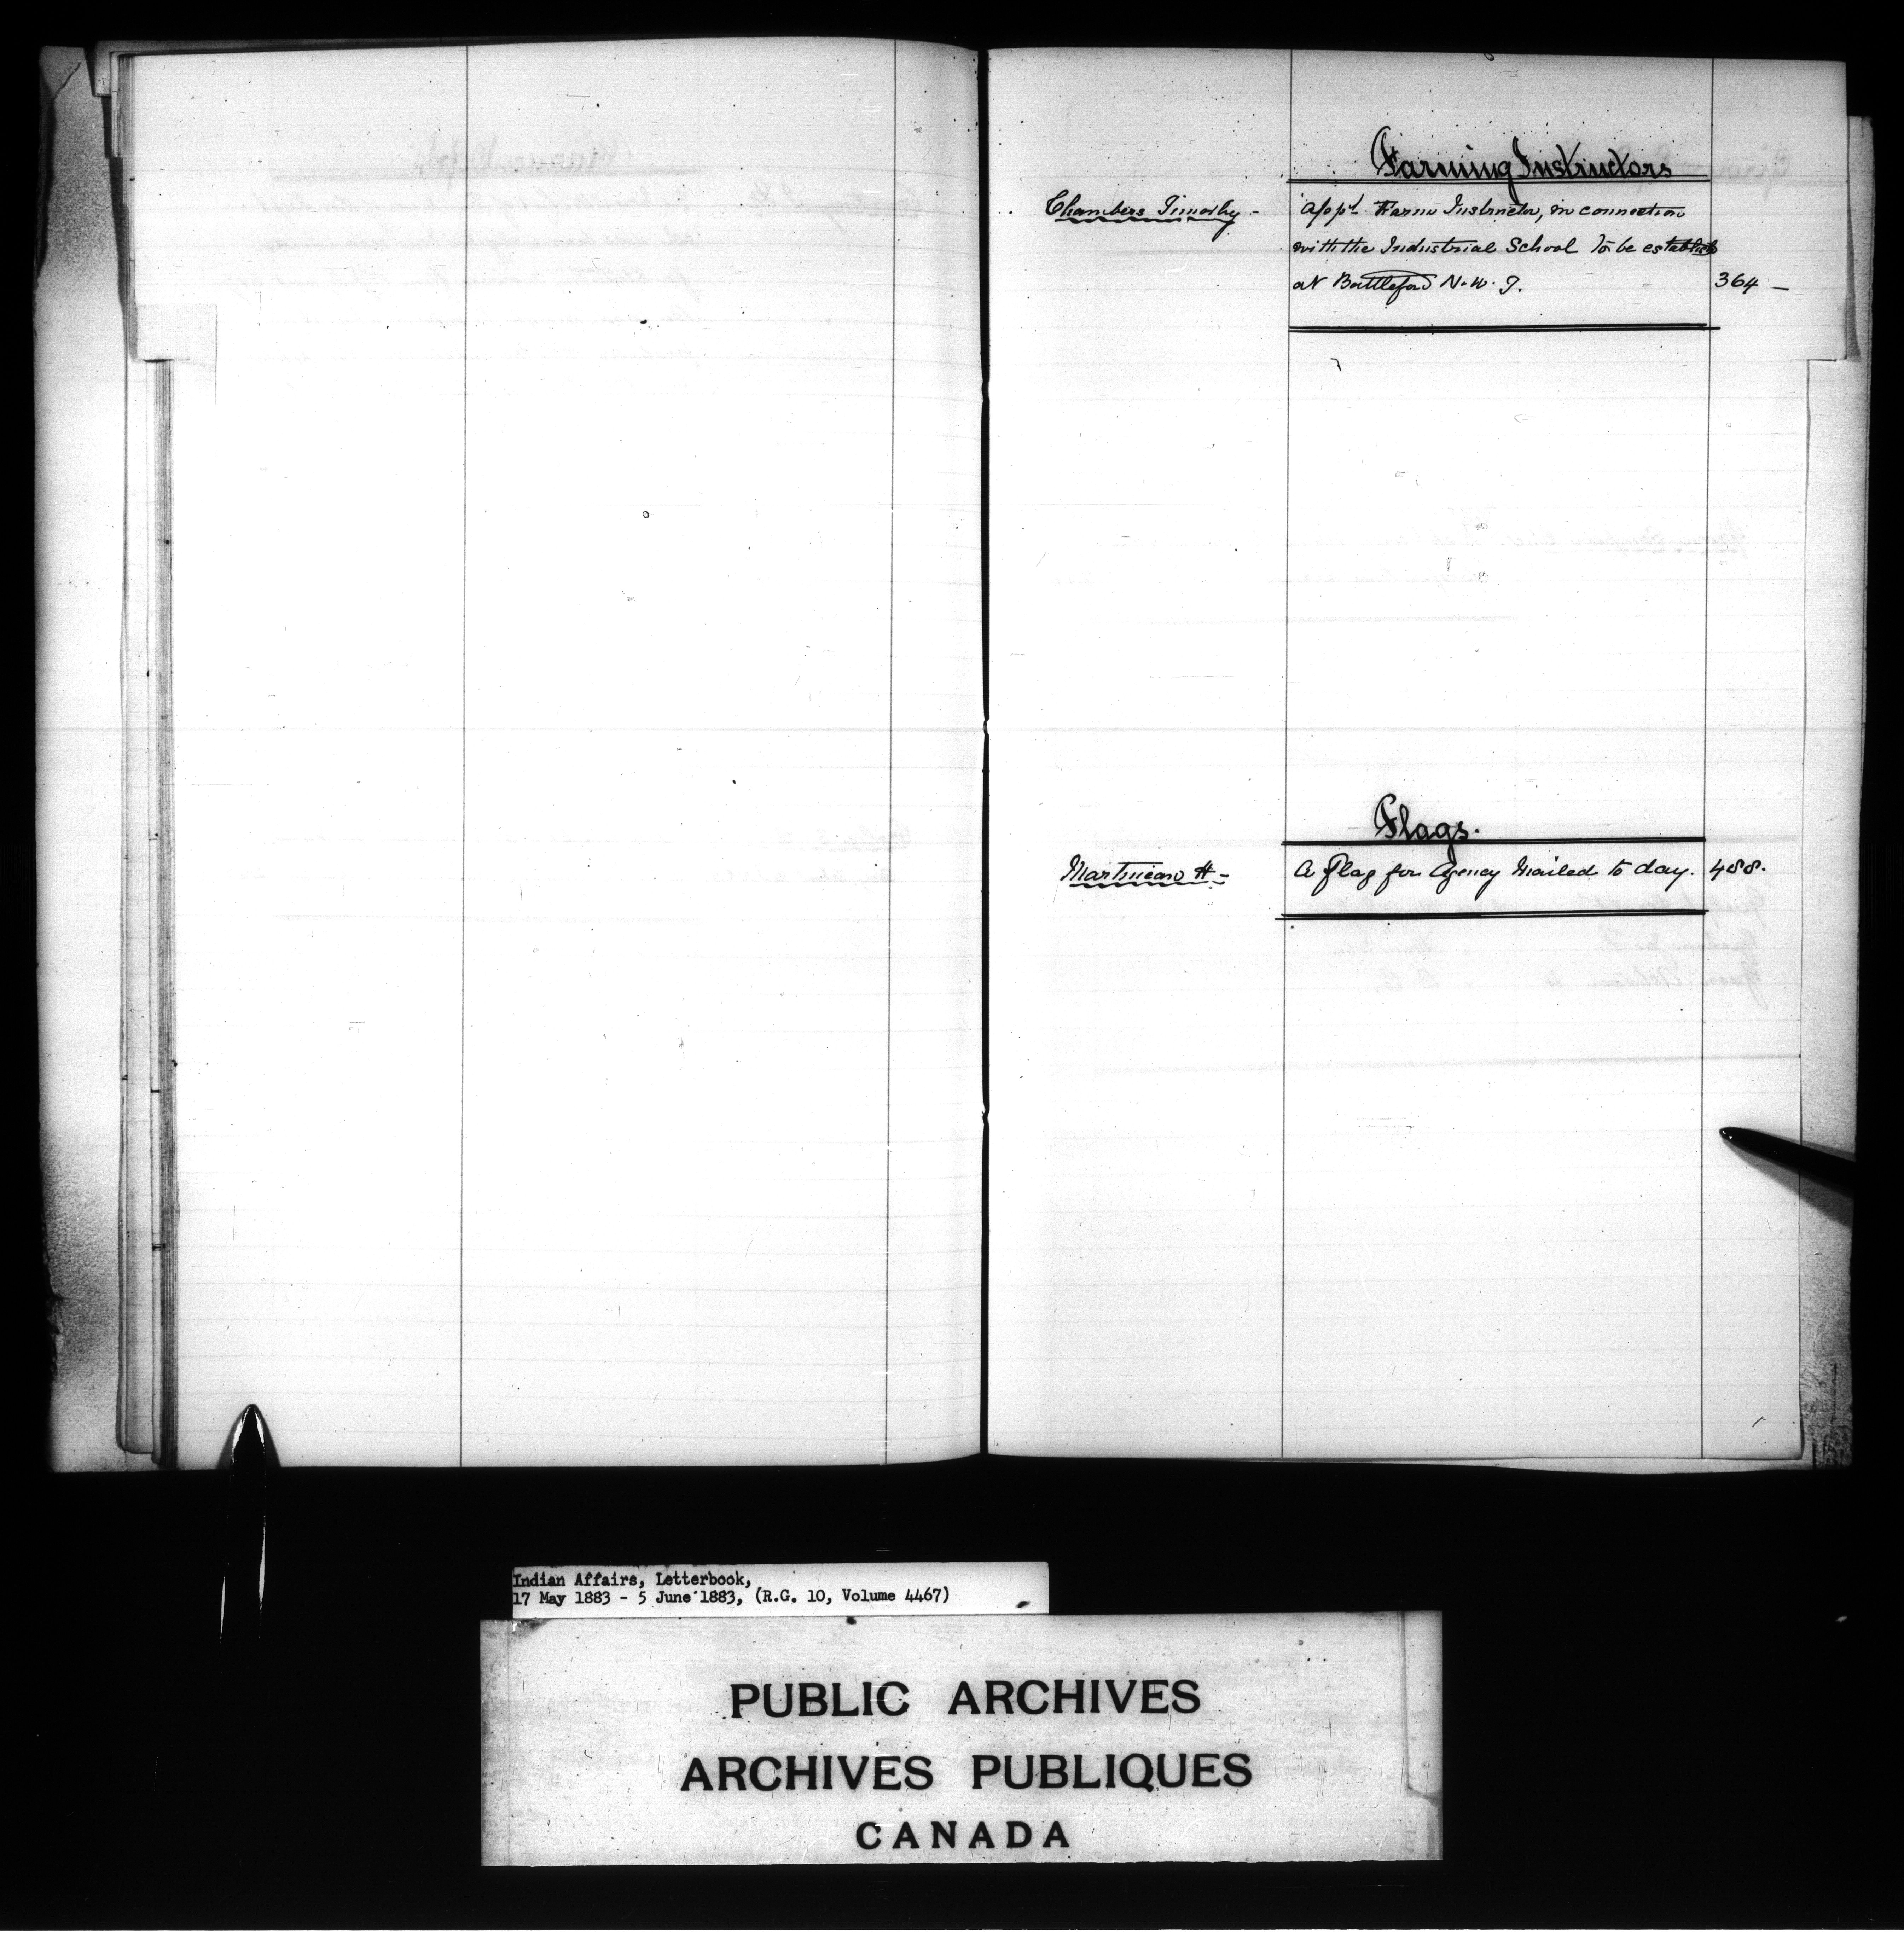 Farming Instructors
Chambers Timothy - App't Farm Instructor, in connection
with the Industrial School to be establish
at Battleford N.W.T. 364 -
Flags.
Martineau H - A Flag for Agency Mailed to day. 488.
Indian Affairs, Letterbook,
17 May 1883 - 5 June 1883, (R.G. 10, Volume 4467)
PUBLIC ARCHIVES
ARCHIVES PUBLIQUES
CANADA